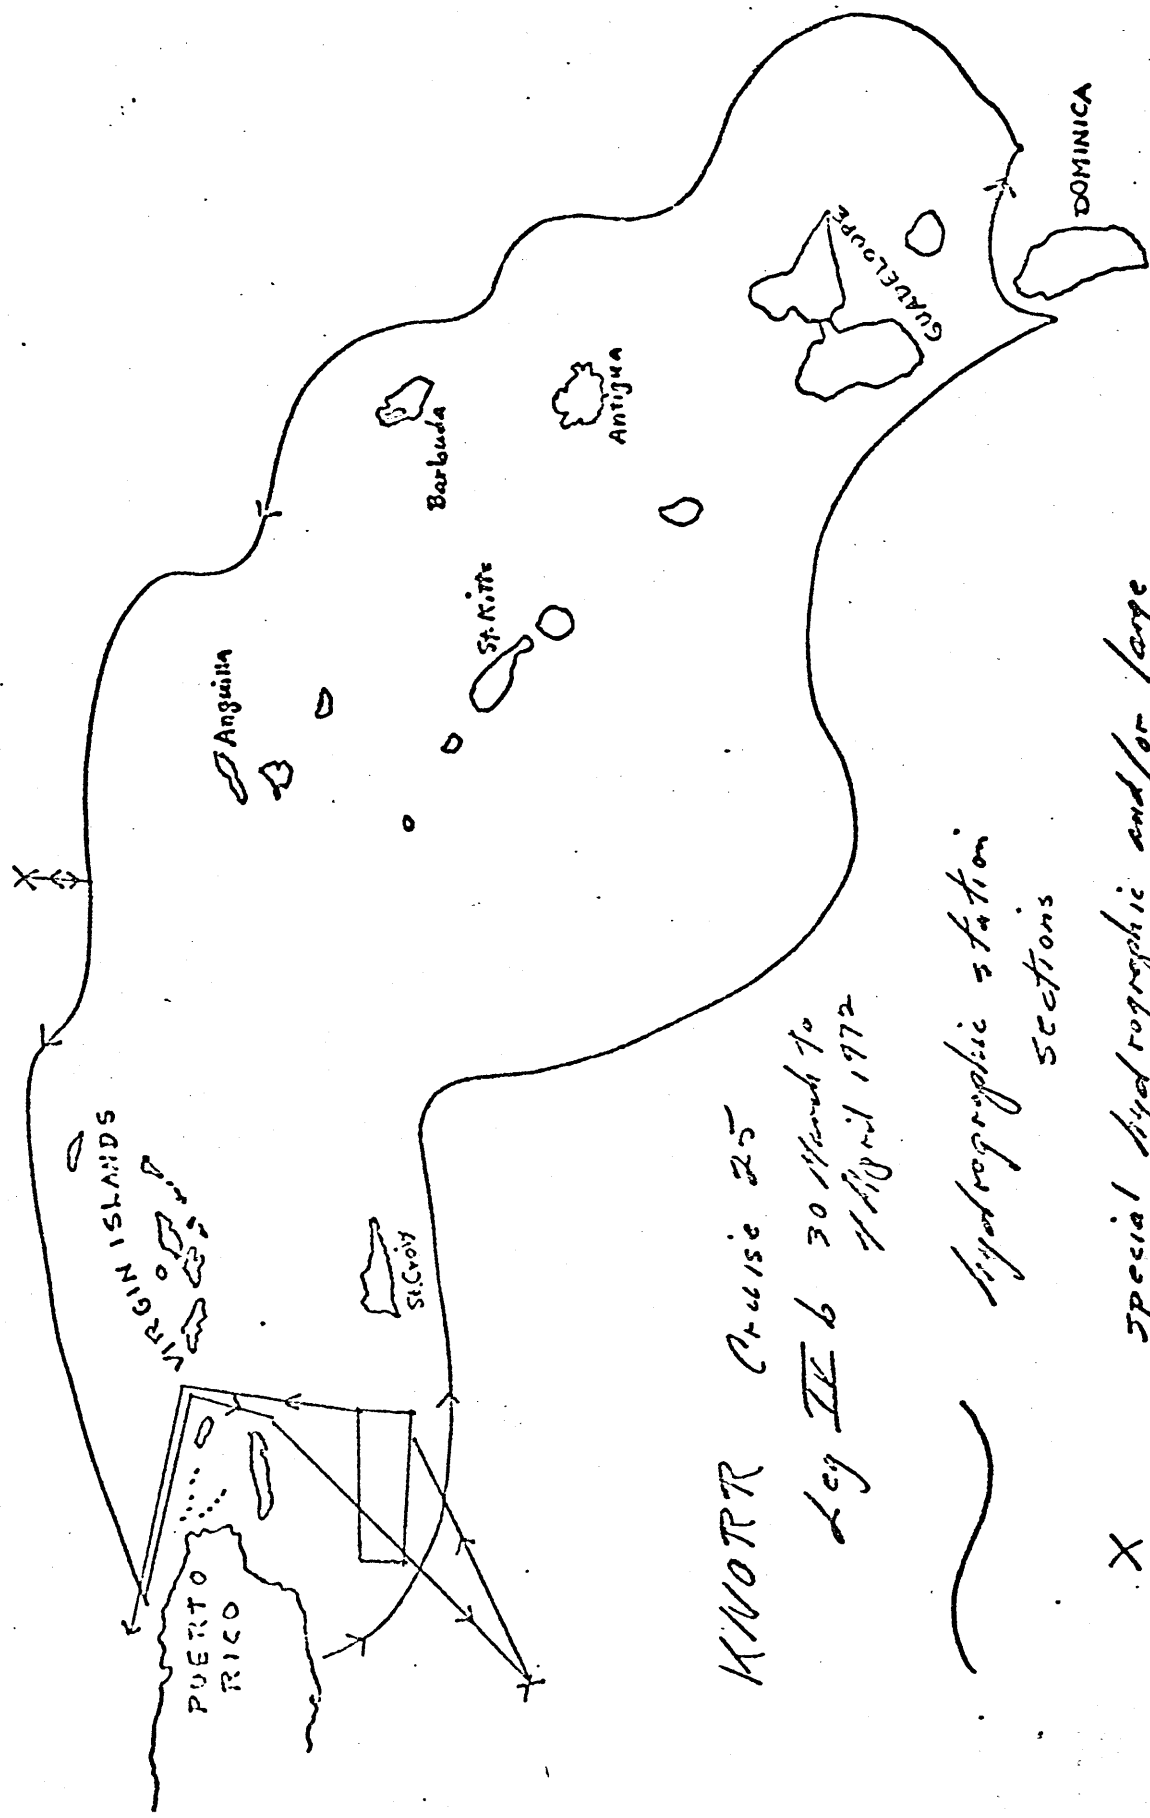 VIRGIN ISLANDS
PUERTO
RICO
St. Croix
Anguilla
St. Kitts
Barbuda
Antigua
GUADELOUPE
DOMINICA
KNORR Cruise 25
Leg IV b 30 March to
April 1972
hydrographic station
sections
X special hydrographic and/or large